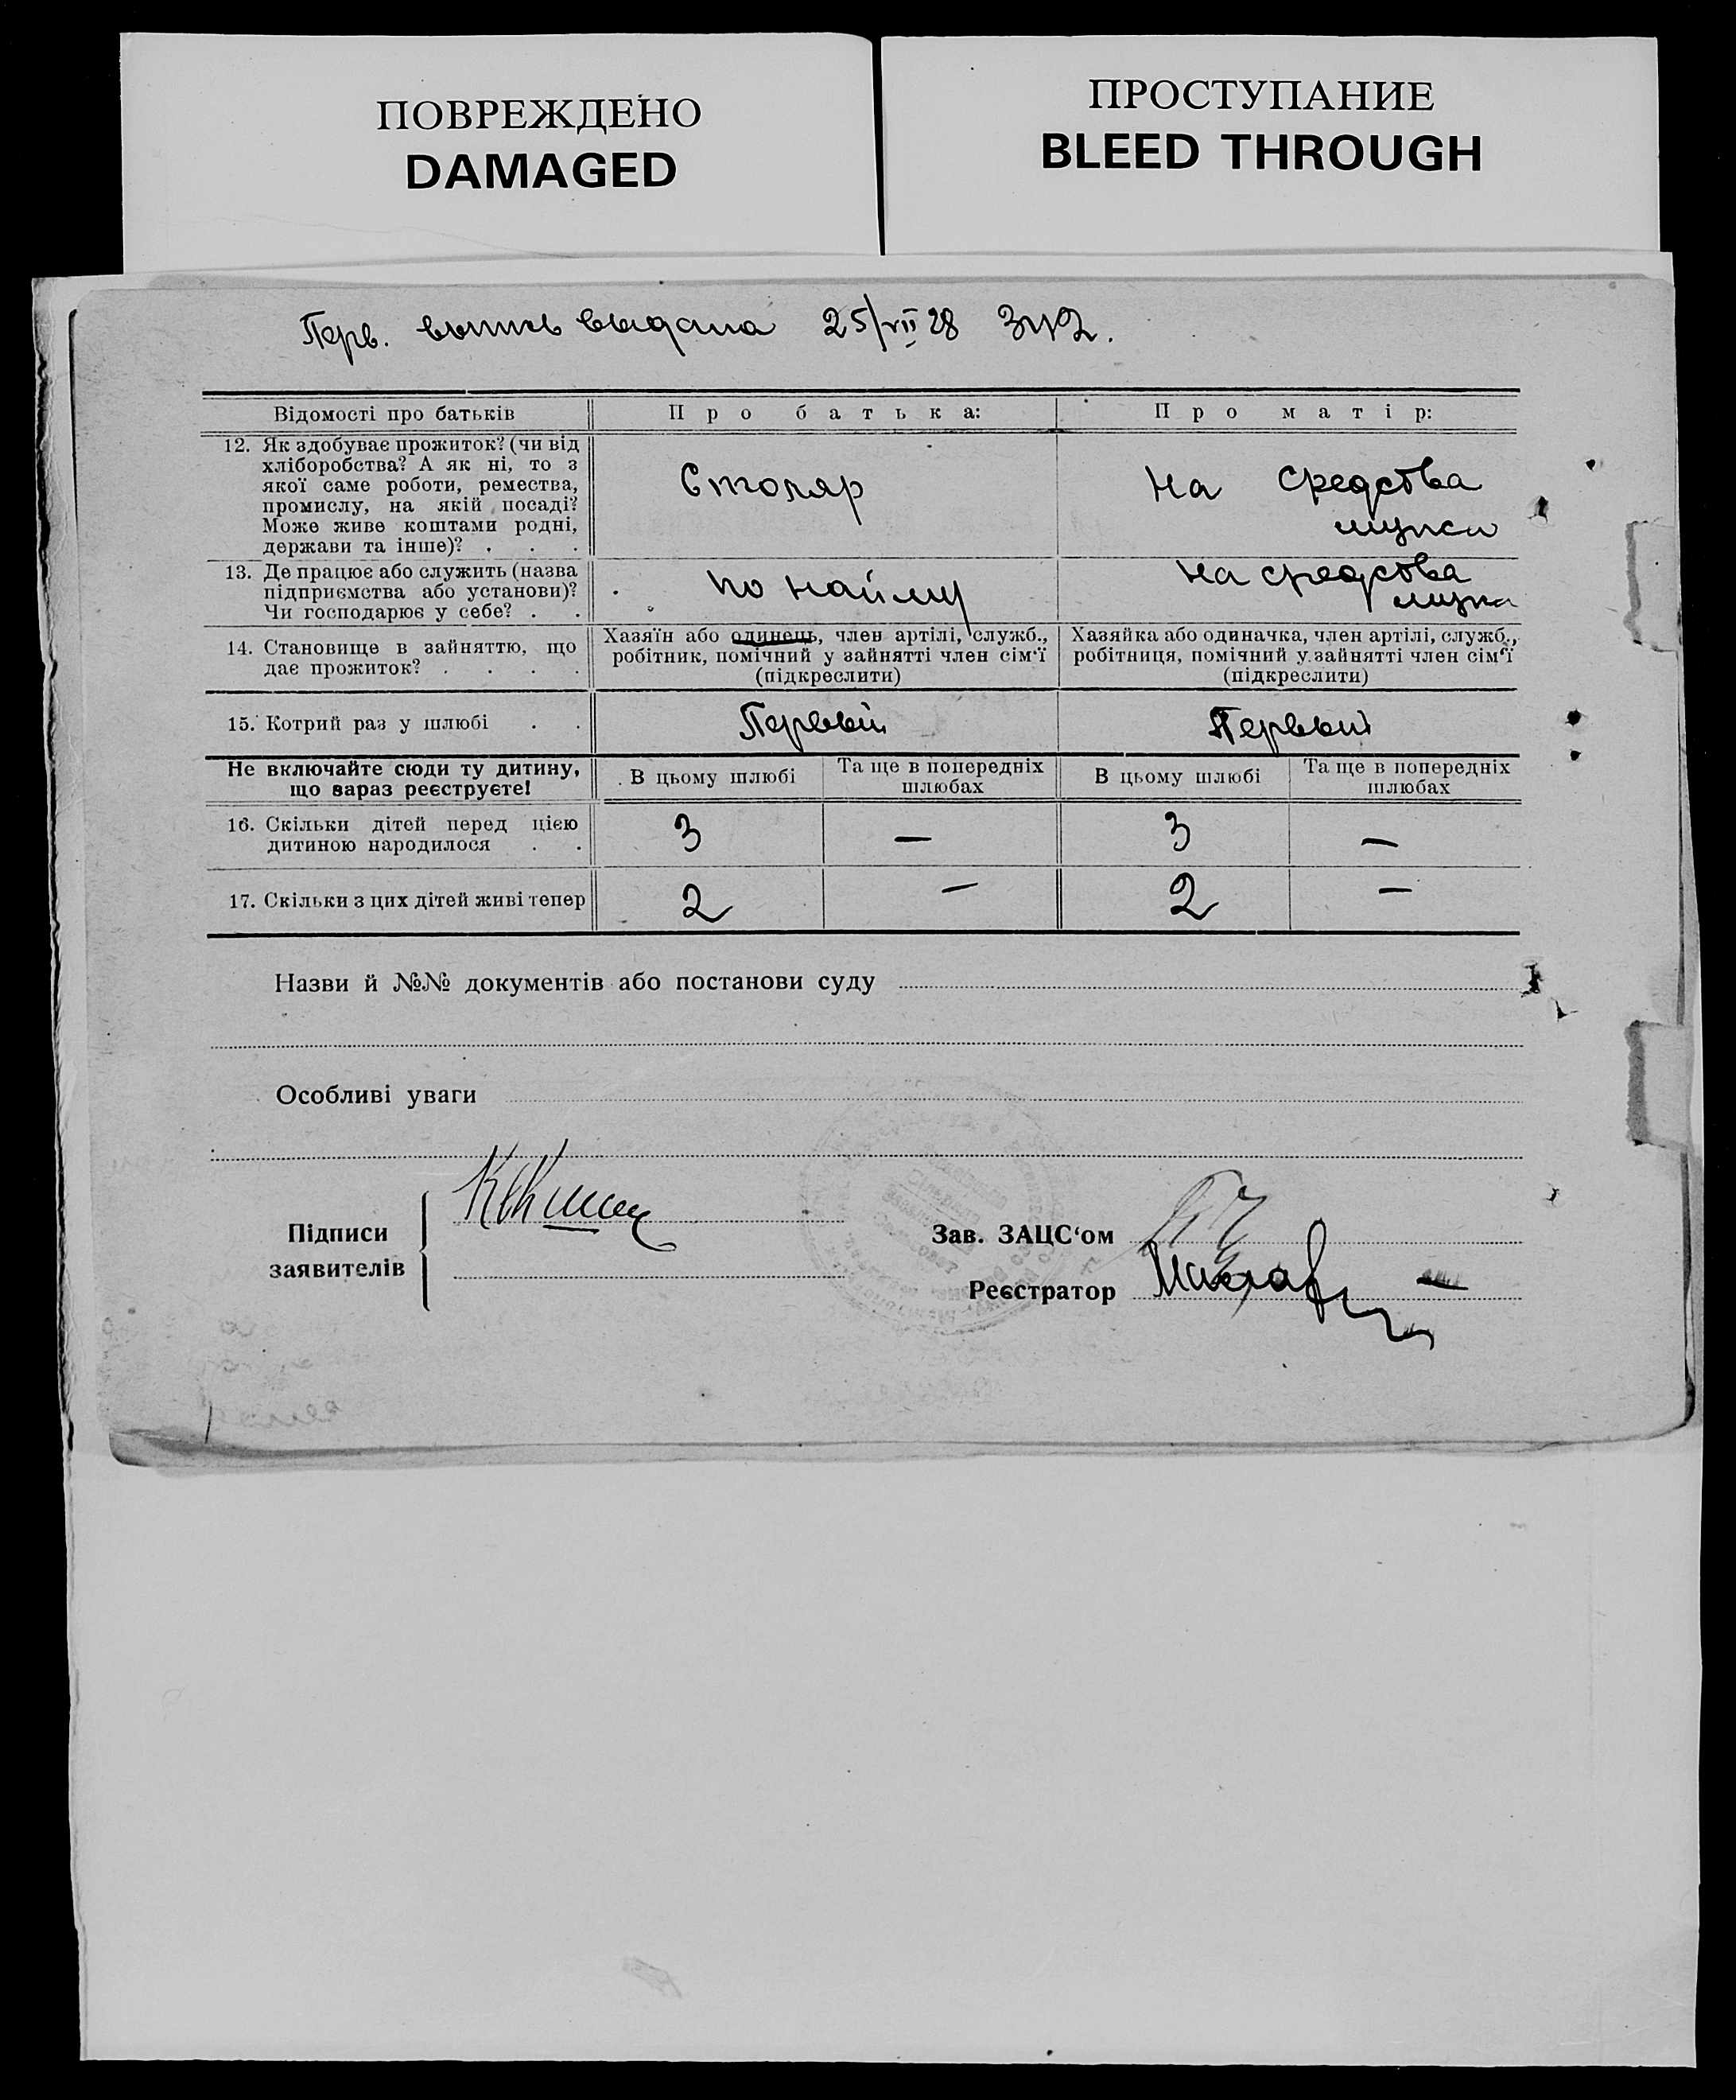 ПОВРЕЖДЕНО
DAMAGED
ПРОСТУПАНИЕ
BLEED THROUGH
Перв. выпись выдана 25/VII 28
Відомості про батьків
Про батька:
Про матір:
12. Як здобуває прожиток? (чи від
хліборобства? А як ні, то з
якої саме роботи, ремества,
промислу, на якій посаді?
Може живе коштами родні,
держави та інше)? . . .
Столяр
На средства
мужа
13. Де працює або служить (назва
підприємства або установи)?
Чи господарює у себе? . .
по найму
на средства
мужа
14. Становище в зайняттю, що
дає прожиток? . . . .
Хазяїн або одинець, член артілі, служб.,
робітник, помічний у зайнятті член сім‘ї
(підкреслити)
Хазяйка або одиначка, член артілі, служб.,
робітниця, помічний у зайнятті член сім‘ї
(підкреслити)
15. Котрий раз у шлюбі . .
Первый
Первый
Не включайте сюди ту дитину,
що зараз реєструєте!
В цьому шлюбі
Та ще в попередніх
шлюбах
В цьому шлюбі
Та ще в попередніх
шлюбах
16. Скільки дітей перед цією
дитиною народилося . .
3
—
3
—
17. Скільки з цих дітей живі тепер
2
—
2
—
Назви й №№ документів або постанови суду
Особливі уваги
Підписи
заявителів
Зав. ЗАЦС‘ом
Реєстратор